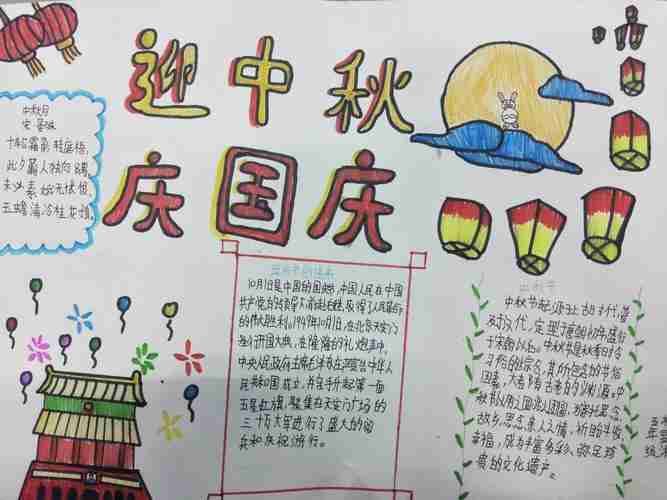 迎中秋
庆国庆
中秋月
宋 晏殊
十轮霜影转庭梧
此夕羁人独向隅
未必素娥无怅恨
玉蟾清冷桂花孤
国庆节的由来
10月1日是中国的国庆节,中国人民在中国
共产党的领导下,前赴后继,取得了人民革命
的伟大胜利。1949年10月1日,在北京天安门
举行开国大典,在隆隆的礼炮声中,
中央人民政府主席毛泽东在宣告中华人
民共和国成立,并亲手升起第一面
五星红旗,聚集在天安门广场的
三十万大军进行了盛大的阅
兵和庆祝游行。
中秋节
中秋节起源上古时代,普
及汉代,定型唐朝初年,盛行
于宋朝以后。中秋节是秋季时令
习俗的综合,其所包含的节俗
因素,大都有古老的渊源。中
秋节以月之圆兆人之团圆,为寄托思念
故乡,思念亲人之情,祈盼丰收、
幸福,成为丰富多彩、弥足珍
贵的文化遗产。